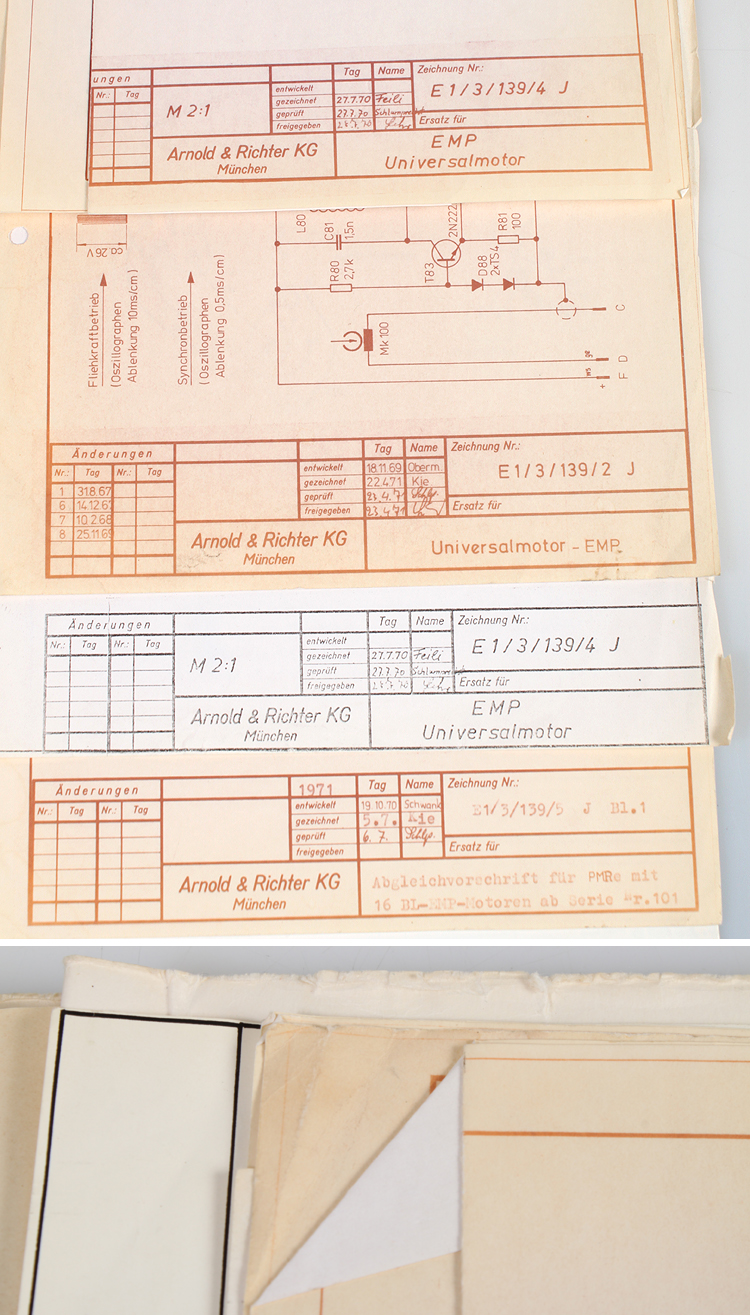 ungen
Nr.: Tag
M 2:1
Tag Name Zeichnung Nr.:
entwickelt
gezeichnet 27.7.70 Feili
geprüft 27.7.70
freigegeben
E 1/3/139/4 J
Ersatz für
Arnold & Richter KG
München
EMP
Universalmotor
ca 26V
Fliehkraftbetrieb
(Oszillographen
Ablenkung 10ms/cm)
Synchronbetrieb
(Oszillographen
Ablenkung 0,5ms/cm)
L80
C81
1,5n
R80
2,7k
T83
2N222
D88
2xTS4
R81
100
Mk 100
C
D
F
+
ws
Änderungen
Nr.: Tag Nr.: Tag
1 31.8.67
6 14.12.67
7 10.2.68
8 25.11.69
Tag Name Zeichnung Nr.:
entwickelt 18.11.69 Oberm.
gezeichnet 22.4.71 Kie
geprüft 23.4.71
freigegeben 23.4.71
E1/3/139/2 J
Ersatz für
Arnold & Richter KG
München
Universalmotor - EMP
Änderungen
Nr.: Tag Nr.: Tag
M 2:1
Tag Name Zeichnung Nr.:
entwickelt
gezeichnet 27.7.70 Feili
geprüft 27.7.70
freigegeben
E 1/3/139/4 J
Ersatz für
Arnold & Richter KG
München
EMP
Universalmotor
Änderungen
Nr.: Tag Nr.: Tag
1971 Tag Name Zeichnung Nr.:
entwickelt 19.10.70 Schwank
gezeichnet 5.7. Kie
geprüft 6.7.
freigegeben
E1/3/139/5 J Bl.1
Ersatz für
Arnold & Richter KG
München
Abgleichvorschrift für PMRe mit
16 BL-EMP-Motoren ab Serie Nr.101